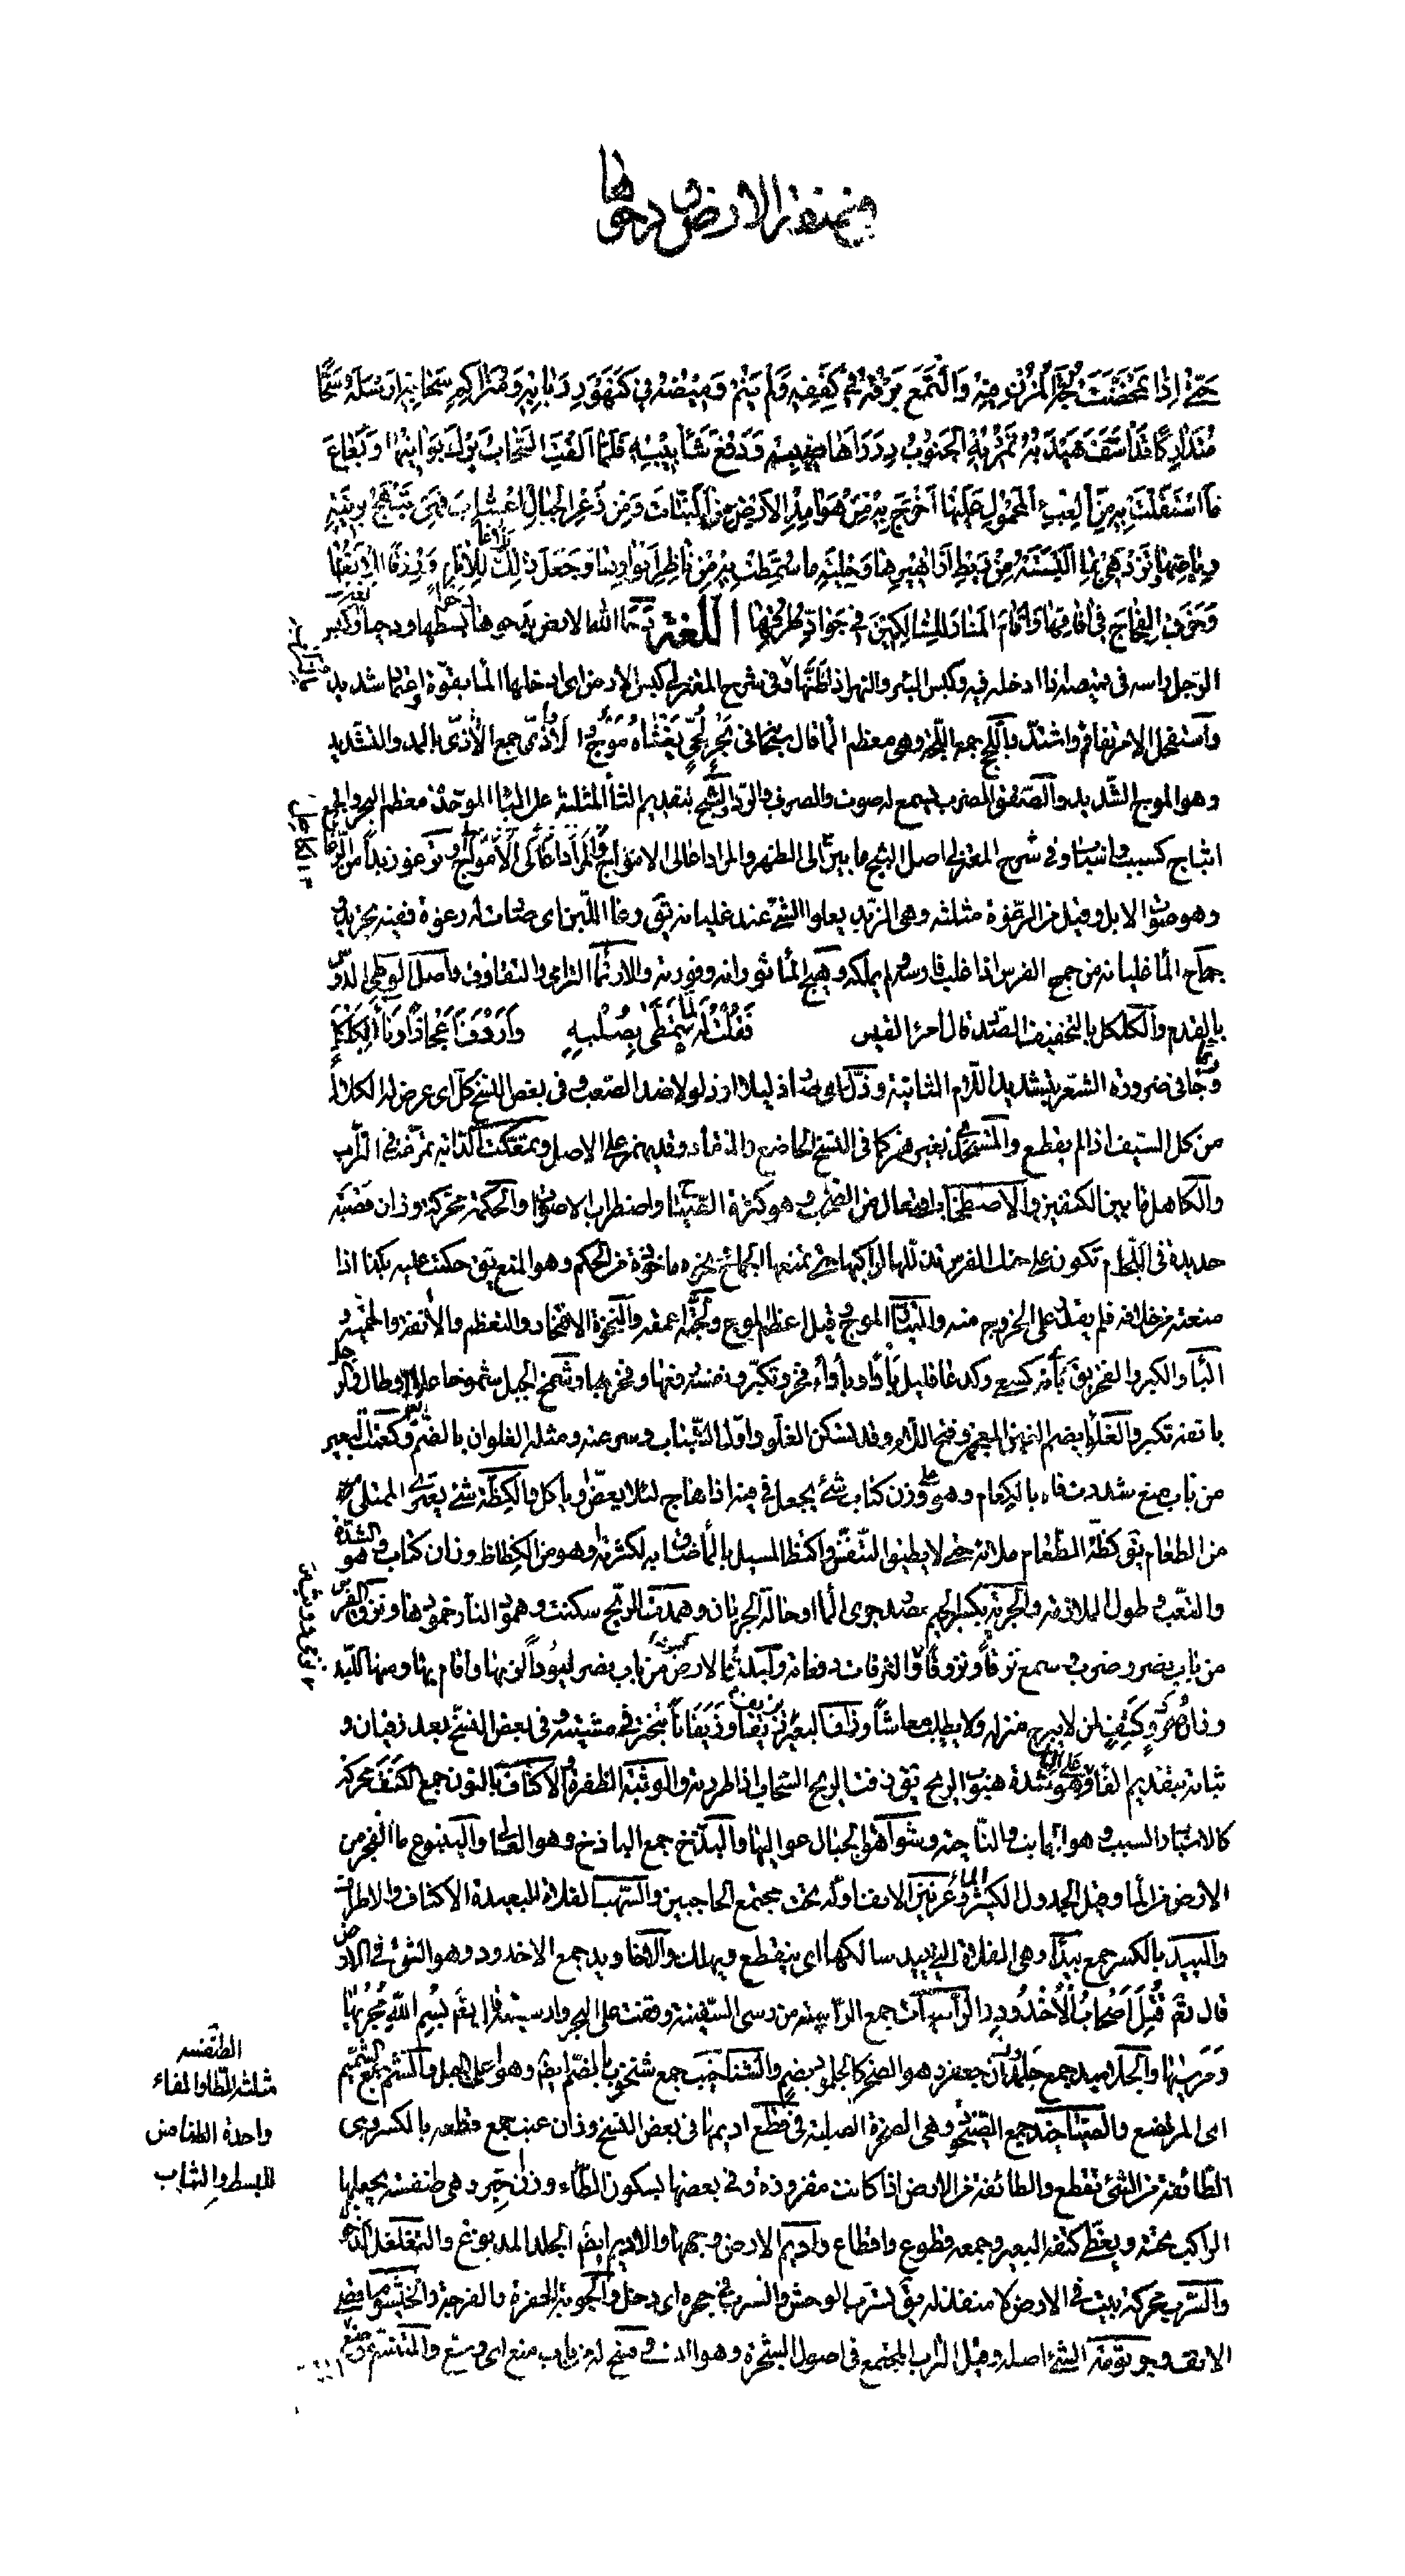 في صفة الارض و دحوها
حَتّىٰ اِذَا تَمَخَّضَتْ لُجَّةُ الْمُزْنِ فيهِ وَ الْتَمَعَ بَرْقُهُ في كُفَفِهِ وَ لَمْ يَنَمْ وَميضُهُ في كَنَهْوَرِ رَبابِهِ وَ مُتَراكِمِ سَحابِهِ اَرْسَلَهُ سَحًّا
مُتَدارِكًا قَدْ اَسَفَّ هَيْدَبُهُ تَمْريهِ الْجَنُوبُ دِرَرَ اَهاضيبِهِ وَ دُفَعَ شَآبيبِهِ فَلَمّا اَلْقَتِ السَّحابُ بَرْكَ بَوانيها وَ بَعاعَ
مَا اسْتَقَلَّتْ بِهِ مِنَ الْعِبْءِ الْمَحْمُولِ عَلَيْها اَخْرَجَ بِهِ مِنْ هَوامِدِ الْاَرْضِ النَّباتَ وَ مِنْ زُعْرِ الْجِبالِ الْاَعْشابَ فَهِيَ تَبْهَجُ بِزينَةِ
رِياضِها وَ تَزْدَهي بِما اُلْبِسَتْهُ مِنْ رَيْطِ اَزاهيرِها وَ حِلْيَةِ ما سُمِّطَتْ بِهِ مِنْ ناضِرِ اَنْوارِها وَ جَعَلَ ذٰلِكَ بَلاغًا لِلْاَنامِ وَ رِزْقًا لِلْاَنْعامِ
وَ خَرَقَ الْفِجاجَ في آفاقِها وَ اَقامَ الْمَنارَ لِلسّالِكينَ في جَوادِّ طُرُقِها اللغة دحا اللّه الارض يدحوها دحوا بسطها و كبس
الرّجل راسه في قميصه اذا ادخله فيه و كبس البئر و النهر اذا طمّها و في شرح المعتزلي كبس الارض اى ادخلها الماء بقوّة و اعتماد شديد
و استفحل الامر تفاقم و اشتدّ و اللّجج جمع اللّجة و هي معظم الماء قال سبحانه في بَحْرٍ لُجِّيٍّ يَغْشاهُ مَوْجٌ و الاواذى جمع الآذىّ بالمدّ و التشديد
و هو الموج الشّديد و الصّفق الضرب يسمع له صوت و الصرف و الردّ و الثّبج بتقديم الثاء المثلثة على الباء الموحّدة معظم البحر و الجمع
اثباج كسبب و اسباب و في شرح المعتزلي اصل الثبج ما بين الكاهل الى الظهر و المراد اعالى الامواج و ترغو زبدا من الرّغا
و هو صوت الابل و قيل من الرّغوة مثلثة و هي الزّبد يعلو الشّيء عند غليانه يق رغا اللّبن اى صارت له رغوة ففيه تجريد و
جماح الماء غليانه من جمح الفرس اذا غلب فارسه و لم يملكه و هيج الماء ثورانه و فورته و الارتماء الترامى و التقاذف و اصل الوطى الدّوس
بالقدم و الكلكل بالتخفيف الصّدر قال امرء القيس فَقُلْتُ لَهُ لَمّا تَمَطّىٰ بِصُلْبِهِ وَ اَرْدَفَ اَعْجازًا وَ ناءَ بِكَلْكَلٍ
و ربما جاء في ضرورة الشّعر بتشديد اللّام الثانية و ذلّ اى صار ذليلا او ذلولا ضد الصّعب و في بعض النسخ كلّ اى عرض له الكلال
من كلّ السّيف اذا لم يقطع و المستخذى بغير همز كما في النسخ الخاضع و المنقاد و قد يهمز على الاصل و تمعّكت الدّابة تمرّغت في التّراب
و الكاهل ما بين الكتفين و الاصطخاب افتعال من الصّخب و هو كثرة الصّياح و اضطراب الاصوات و الحكمة محرّكة وزان قصبة
حديدة في اللّجام تكون على حنك الفرس تذلّلها لراكبها حتى تمنعها الجماح و نحوه ماخوذة من الحكم و هو المنع يق حكمت عليه بكذا اذا
منعته من خلافه فلم يقدر على الخروج منه و التيّار الموج و قيل اعظم الموج و لجّته اعمقه و النّخوة الافتخار و التّعظم و الانفة و الحميّة و
البأو الكبر و الفخر يق بأى كسعى و كدعا قليل بأوا و بأواء فخر و تكبّر و نفسه رفعها و فخر بها و شمخ الجبل شموخا علا و طال و الرجل
بانفه تكبّر و الغلواء بضمّ الغين المعجمة و فتح اللّام و قد تسكن الغلوّ و اوّل الشّباب و سرعته و مثله الغلوان بالضّمّ و كعمت البعير
من باب منع شددت فاه بالكعام و هو على وزن كتاب شيء يجعل في فيه اذا هاج لئلا يعضّ او ياكل و الكظّة شيء يعترى الممتلى
من الطعام يق كظّه الطّعام ملأه حتى لا يطيق التّنفّس و اكتظّ المسيل بالماء ضاق به لكثرته او هو من الكظاظ وزان كتاب و هو الشدّة
و التّعب و طول الملازمة و الجرية بكسر الجيم مصدر جرى الماء او حالة الجريان و همدت الريح سكنت و همود النار خمودها و نزق الفرس
من باب نصر و ضرب و سمع نزقا و نزوقا و النزقات دفعاته و لبد بالارض من باب نصر لبودا لزق بها و اقام بها و منها اللبد
وزان صرد و كتف لمن لا يبرح منزله و لا يطلب معاشا و زاف البعير يزيف زيفا و زيفانا تبختر في مشيته و في بعض النسخ بعد زفيان و
ثباته بتقديم الفاء و هو شدّة هبوب الرّيح يق زفت الرّيح السّحاب اذا طردته و الوثبة الطّفرة و الاكناف بالنون جمع الكنف محرّكة
كالاسباب و السبب و هو الجانب و النّاحية و شواهق الجبال عواليها و البذّخ جمع الباذخ و هو العالى و الينبوع ما انفجر من
الارض من الماء و قيل الجدول الكثير الماء و عرنين الانف اوّله تحت مجتمع الحاجبين و السّهب الفلاة البعيدة الاكناف و الاطراف
و البيد بالكسر جمع بيداء و هي الفلاة التي يبيد سالكها اى ينقطع و يهلك و الاخاديد جمع الاخدود و هو الشقّ في الارض
قال تعم قُتِلَ اَصْحابُ الْاُخْدُودِ و الراسيات جمع الرّاسية من رسى السّفينة وقفت على البحر و ارسيته قال تعم بِسْمِ اللّهِ مَجْريها
وَ مُرْسيها و الجلاميد جمع جلمد وزان جعفر و هو الصّخر كالجلمود بضم و الشناخيب جمع شنخوب بالضّم ايضا و هو اعلى الجبل و الشّمّ جمع الشّميم
اى المرتفع و الصّياخيد جمع الصّيخود و هي الصخرة الصلبة و في قطع اديمها في بعض النسخ وزان عنب جمع قطعه بالكسر و هي
الطّائفة من الشّيء تقطع و الطائفة من الارض اذا كانت مفروزة و في بعضها بسكون الطّاء وزان حبر و هي طنفسة يجعلها
الراكب تحته و يغطّى كتفى البعير و جمعه قطوع و اقطاع و اديم الارض وجهها و الاديم ايضا الجلد المدبوغ و التغلغل الدخول
و السّرب محرّكة بيت في الارض لا منفذ له يق تسرّب الوحش و انسرب في جحره اى دخل و الجوبة الحفرة و الفرجة و الخيشوم اقصى
الانف و جرثومة الشّيء اصله و قيل التراب المجتمع في اصول الشّجرة و هو الانسب و فسح له من باب منع اى وسّع و المتنسّم موضع
الطنفسه
مثلثة الطّاء و الفاء
واحدة الطنافس
للبسط و الثياب